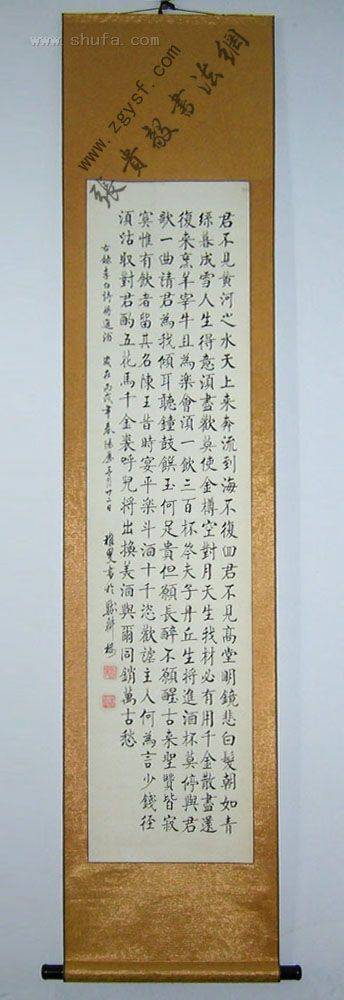 www.shufa.com
www.zgysf.com
張貴書法網
君不見黄河之水天上来奔流到海不復回君不見高堂明鏡悲白髮朝如青
絲暮成雪人生得意須盡歡莫使金樽空對月天生我材必有用千金散盡還
復来烹羊宰牛且為樂會須一飲三百杯岑夫子丹丘生将進酒杯莫停與君
歌一曲請君為我傾耳聽鐘鼓饌玉何足貴但願長醉不願醒古来聖賢皆寂
寞惟有飲者留其名陳王昔時宴平樂斗酒十千恣歡謔主人何為言少錢径
須沽取對君酌五花馬千金裘呼兒将出換美酒與爾同銷萬古愁
右録李白詩将進酒 歲在丙戌年春 廿二日 書於